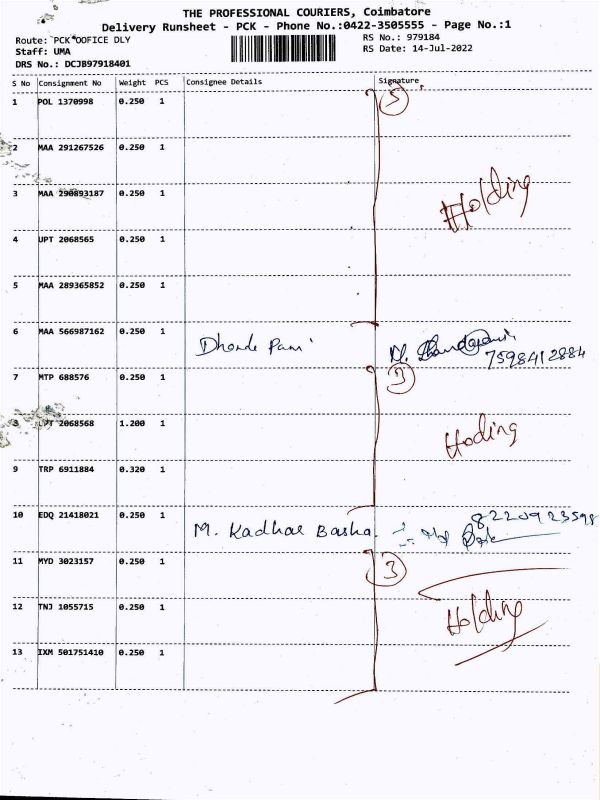 THE PROFESSIONAL COURIERS, Coimbatore
Delivery Runsheet - PCK - Phone No.:0422-3505555 - Page No.:1
Route: PCK OOFICE DLY
RS No.: 979184
Staff: UMA
RS Date: 14-Jul-2022
DRS No.: DCJB97918401
S No Consignment No Weight PCS Consignee Details Signature
1 POL 1370998 0.250 1 5
2 MAA 291267526 0.250 1
Holding
3 MAA 290893187 0.250 1
4 UPT 2068565 0.250 1
5 MAA 289365852 0.250 1
6 MAA 566987162 0.250 1
Dhande Pani
7598412884
7 MTP 688576 0.250 1 3
8 UPT 2068568 1.200 1
Hoding
9 TRP 6911884 0.320 1
10 EDQ 21418021 0.250 1 8220923598
M. Kadhar Basha.
11 MYD 3023157 0.250 1 3
12 TNJ 1055715 0.250 1 Holding
13 IXM 501751410 0.250 1